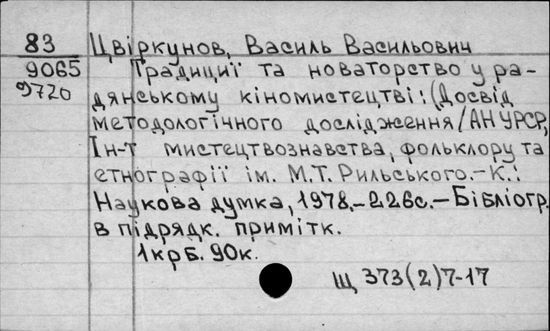 83 Цвіркунов, Василь Васильович
9065 Традициї та новаторство у ра-
9720
дянському кіномистецтві: (Досвід
методологічного дослідження / АН УРСР,
Ін-т мистецтвознавства, фольклору та
етнографії ім. М.Т. Рильського.-К.:
Наукова думка, 1978.-226с.-Бібліогр.
в підрядк. примітк.
1крб. 90к.
Щ 373(2)7-17